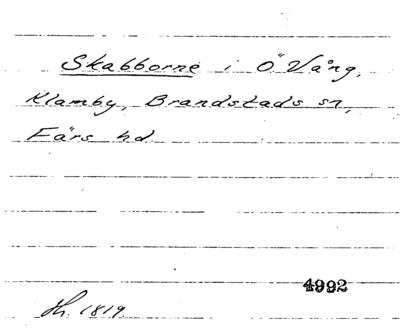 Skabborne i Ö Vång,
Klamby, Brandstads sn,
Färs hd
4992
Sh. 1819